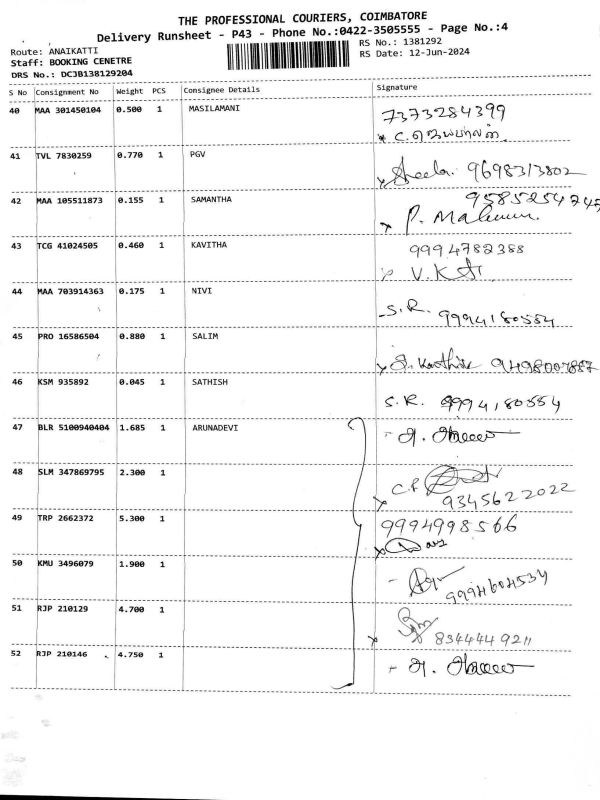 THE PROFESSIONAL COURIERS, COIMBATORE
Delivery Runsheet - P43 - Phone No.:0422-3505555 - Page No.:4
Route: ANAIKATTI
RS No.: 1381292
Staff: BOOKING CENETRE
RS Date: 12-Jun-2024
DRS No.: DCJB138129204
S No Consignment No Weight PCS Consignee Details Signature
40 MAA 301450104 0.500 1 MASILAMANI 7373284399
41 TVL 7830259 0.770 1 PGV Sheela. 9698313802
42 MAA 105511873 0.155 1 SAMANTHA 9585254745
P.
43 TCG 41024505 0.460 1 KAVITHA 9994782388
V.K
44 MAA 703914363 0.175 1 NIVI S.R. 9994180554
45 PRO 16586504 0.880 1 SALIM
46 KSM 935892 0.045 1 SATHISH S.R. 9994180554
47 BLR 5100940404 1.685 1 ARUNADEVI
48 SLM 347869795 2.300 1
9345622022
49 TRP 2662372 5.300 1 9994998566
50 KMU 3496079 1.900 1 9994604534
51 RJP 210129 4.700 1 8344449211
52 RJP 210146 4.750 1